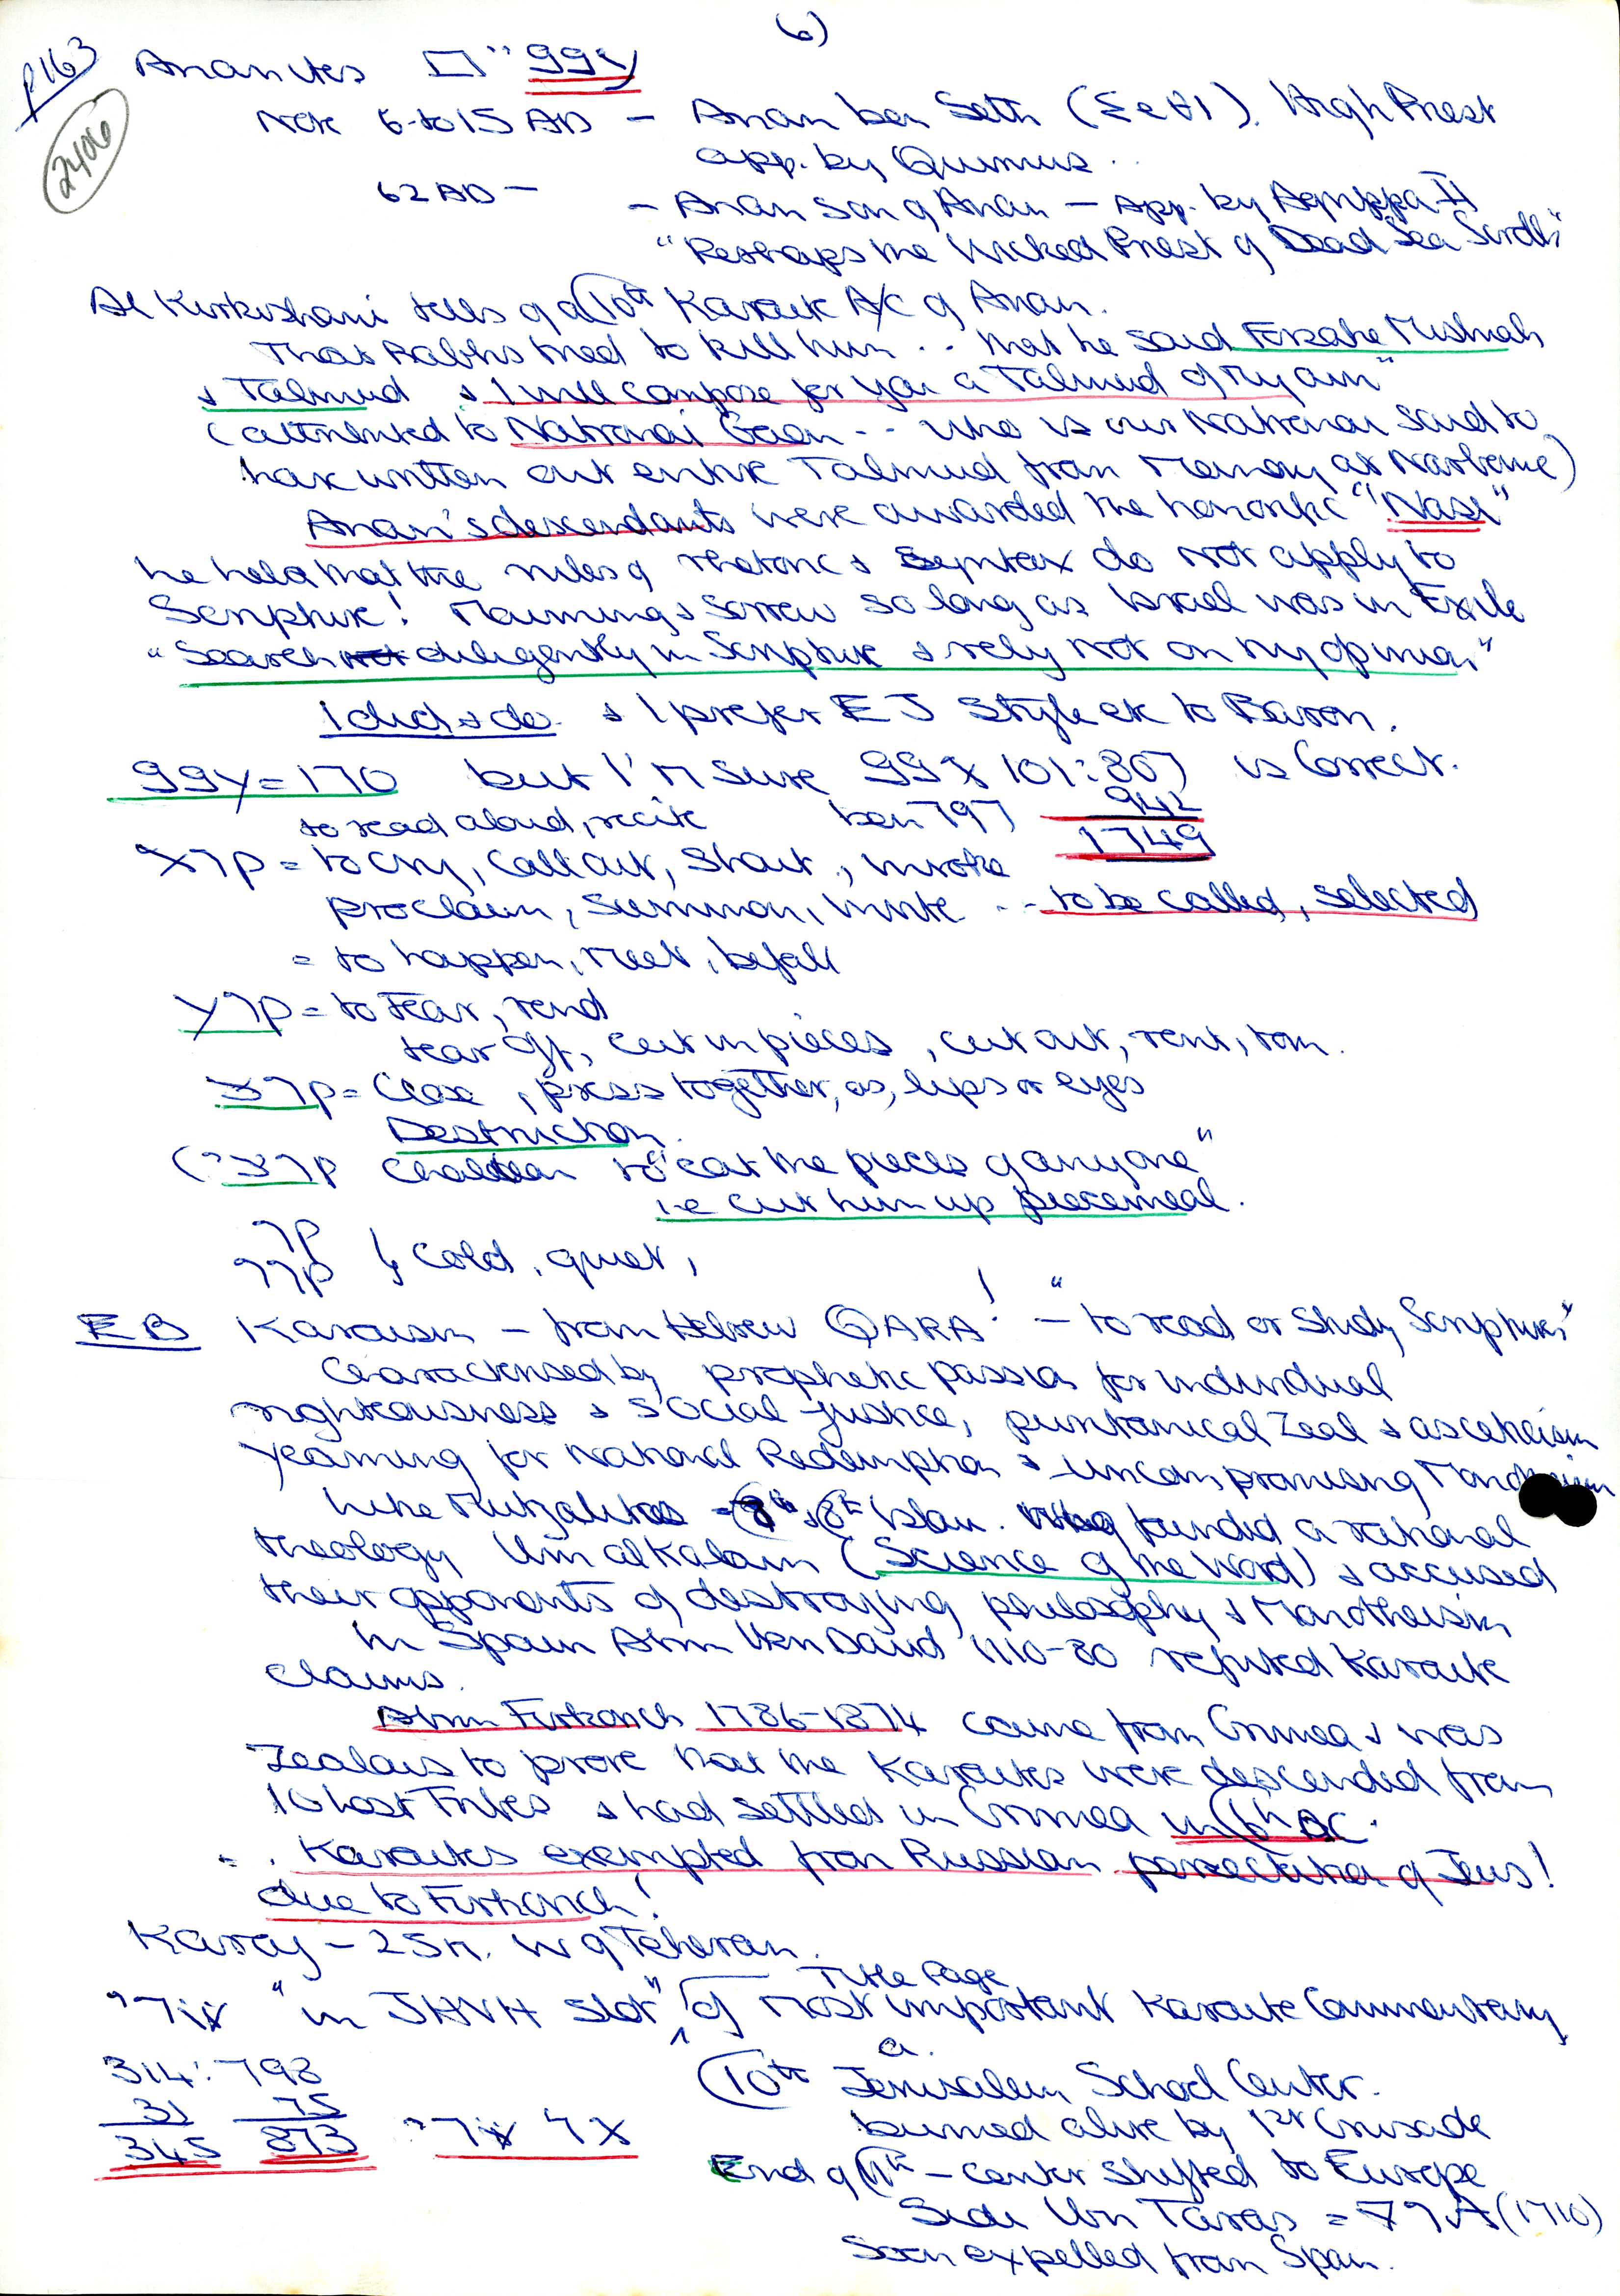 6)
p163
2406
Ananites □"99y
Note 6-to 15 AD - Anan ben Seth (ΣeθI). High Priest
app. by Quirinus ..
62 AD - - Anan son of Anan - App. by Agrippa II
"Perhaps the Wicked Priest of Dead Sea Scrolls"
Al Kirkisani tells of a 10th Karaite A/C of Anan.
That Rabbis tried to kill him .. that he said Forsake Mishnah
& Talmud & I will compose for you a Talmud of my own"
(attributed to Natronai Gaon .. who is our Natronai said to
have written out entire Talmud from Memory at Narbonne)
Anan's descendants were awarded the honorific "Nasi"
he held that the rules of rhetoric & Syntax do not apply to
Scripture! Mourning & Sorrow so long as Israel was in Exile
"Search diligently in Scripture & rely not on my opinion"
I did & do. & I prefer EJ Style etc to Baron.
99y = 170 but I'm sure 99X 101:807 is Correct.
to read aloud, recite ben 797 942
1749
X7p = to cry, call out, shout, invoke
proclaim, summon, invite .. to be called, selected
= to happen, meet, befall
y7p = to tear, rend
tear off, cut in pieces, cut out, rent, torn.
ץ7p = Close, press together, as, lips or eyes
Destruction.
(? ץ7p Chaldean to "eat the pieces of anyone"
i.e cut him up piecemeal.
7p
77p } Cold, quiet,
EB Karaism - from Hebrew QARA! - "to read or Study Scriptures"
Characterised by prophetic passion for individual
righteousness & social justice, puritanical zeal & asceticism
yearning for National Redemption & uncompromising Monotheism
like Mutzalites - 8th & 8th Islam. founded a rational
theology Ilm al Kalam (Science of the Word) & accused
their opponents of destroying philosophy & Monotheism
In Spain Abrm Ibn Daud 1110-80 refuted Karaite
Claims.
Abrm Firkovich 1786-1874 came from Crimea & was
Zealous to prove that the Karaites were descended from
10 Lost Tribes & had settled in Crimea in 6th BC.
.. Karaites exempted from Russian persecution of Jews!
due to Firkovich!
Karaj - 25m. W of Teheran.
"in JHVH slot" of Title Page most important Karaite Commentary
314:798
31 75
345 873
10th a. Jerusalem School Center.
burned alive by 1st Crusade
End of 11th - center shifted to Europe
Sidi Ibn Taras = (1710)
Soon expelled from Spain.